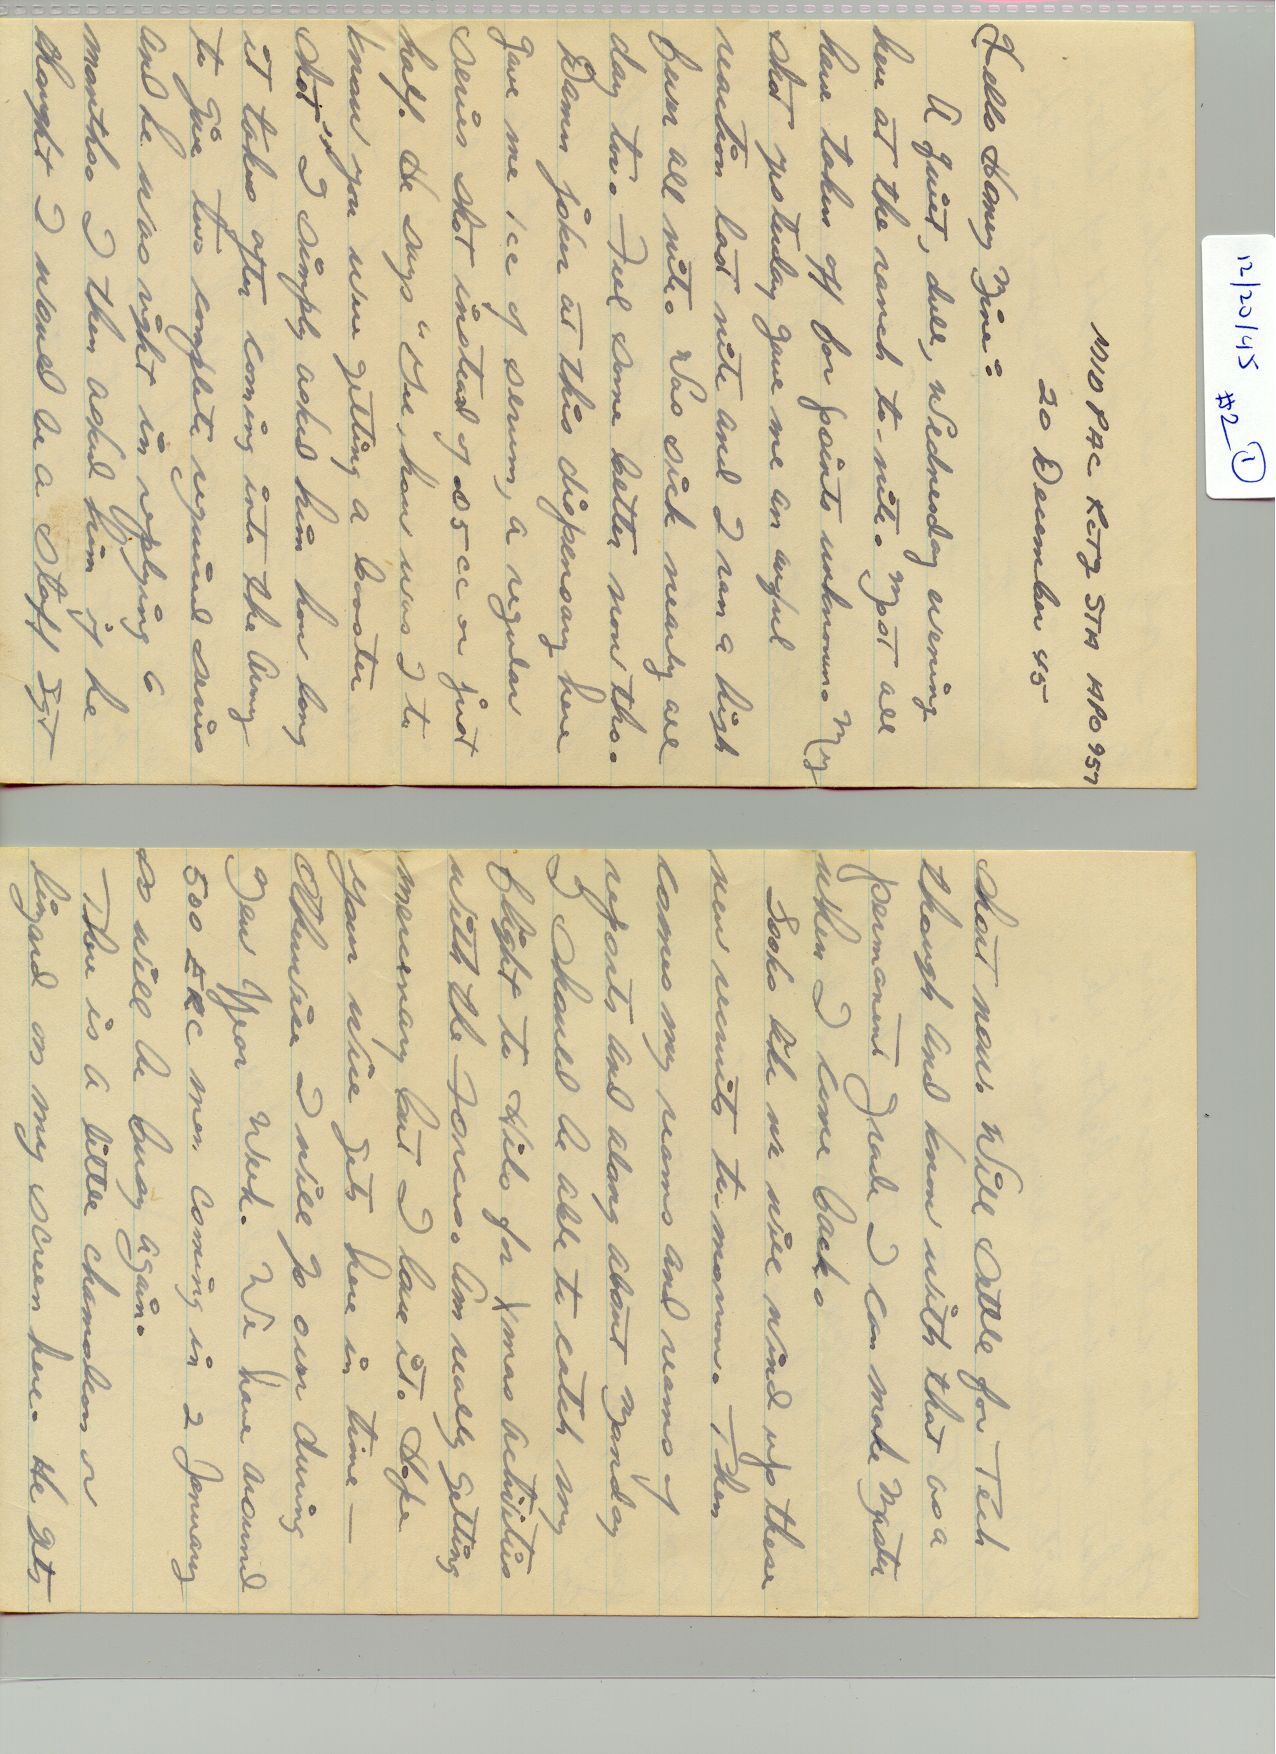 12/20/45
#2 1
MIDPAC RCTG STA APO 957
20 December 45
Hello Honey Mine:
A quiet, dull, Wednesday evening
here at the ranch to-nite. Most all
have taken off for points unknown. My
shot yesterday gave me an awful
reaction last nite and I ran a high
fever all nite. Was sick nearly all
day too. Feel some better now tho.
Damn joker at this dispensary here
gave me 1cc of serum, a regular
series shot instead of .5cc or just
half. He says "Gee, how was I to
know you were getting a booster
shot". I simply asked him how long
it takes after coming into the Army
to give two complete required series
and he was right in replying 6
months. I then asked him if he
thought I would be a Staff Sgt
short now. Will settle for Tech
though and know with that as a
permanent grade I can make Master
when I come back.
Looks like we will wind up these
new recruits to-morrow. Then
comes my reams and reams of
reports and along about Monday
I should be able to catch my
flight to Hilo for Xmas activities
with the Jones. Am really getting
mercenary but I love it. Hope
your wire gets here in time —
Otherwise I will go over during
New Year Week. We have around
500 ERC men coming in 2 January
so will be busy again.
There is a little chameleon or
lizard on my screen here. He gets